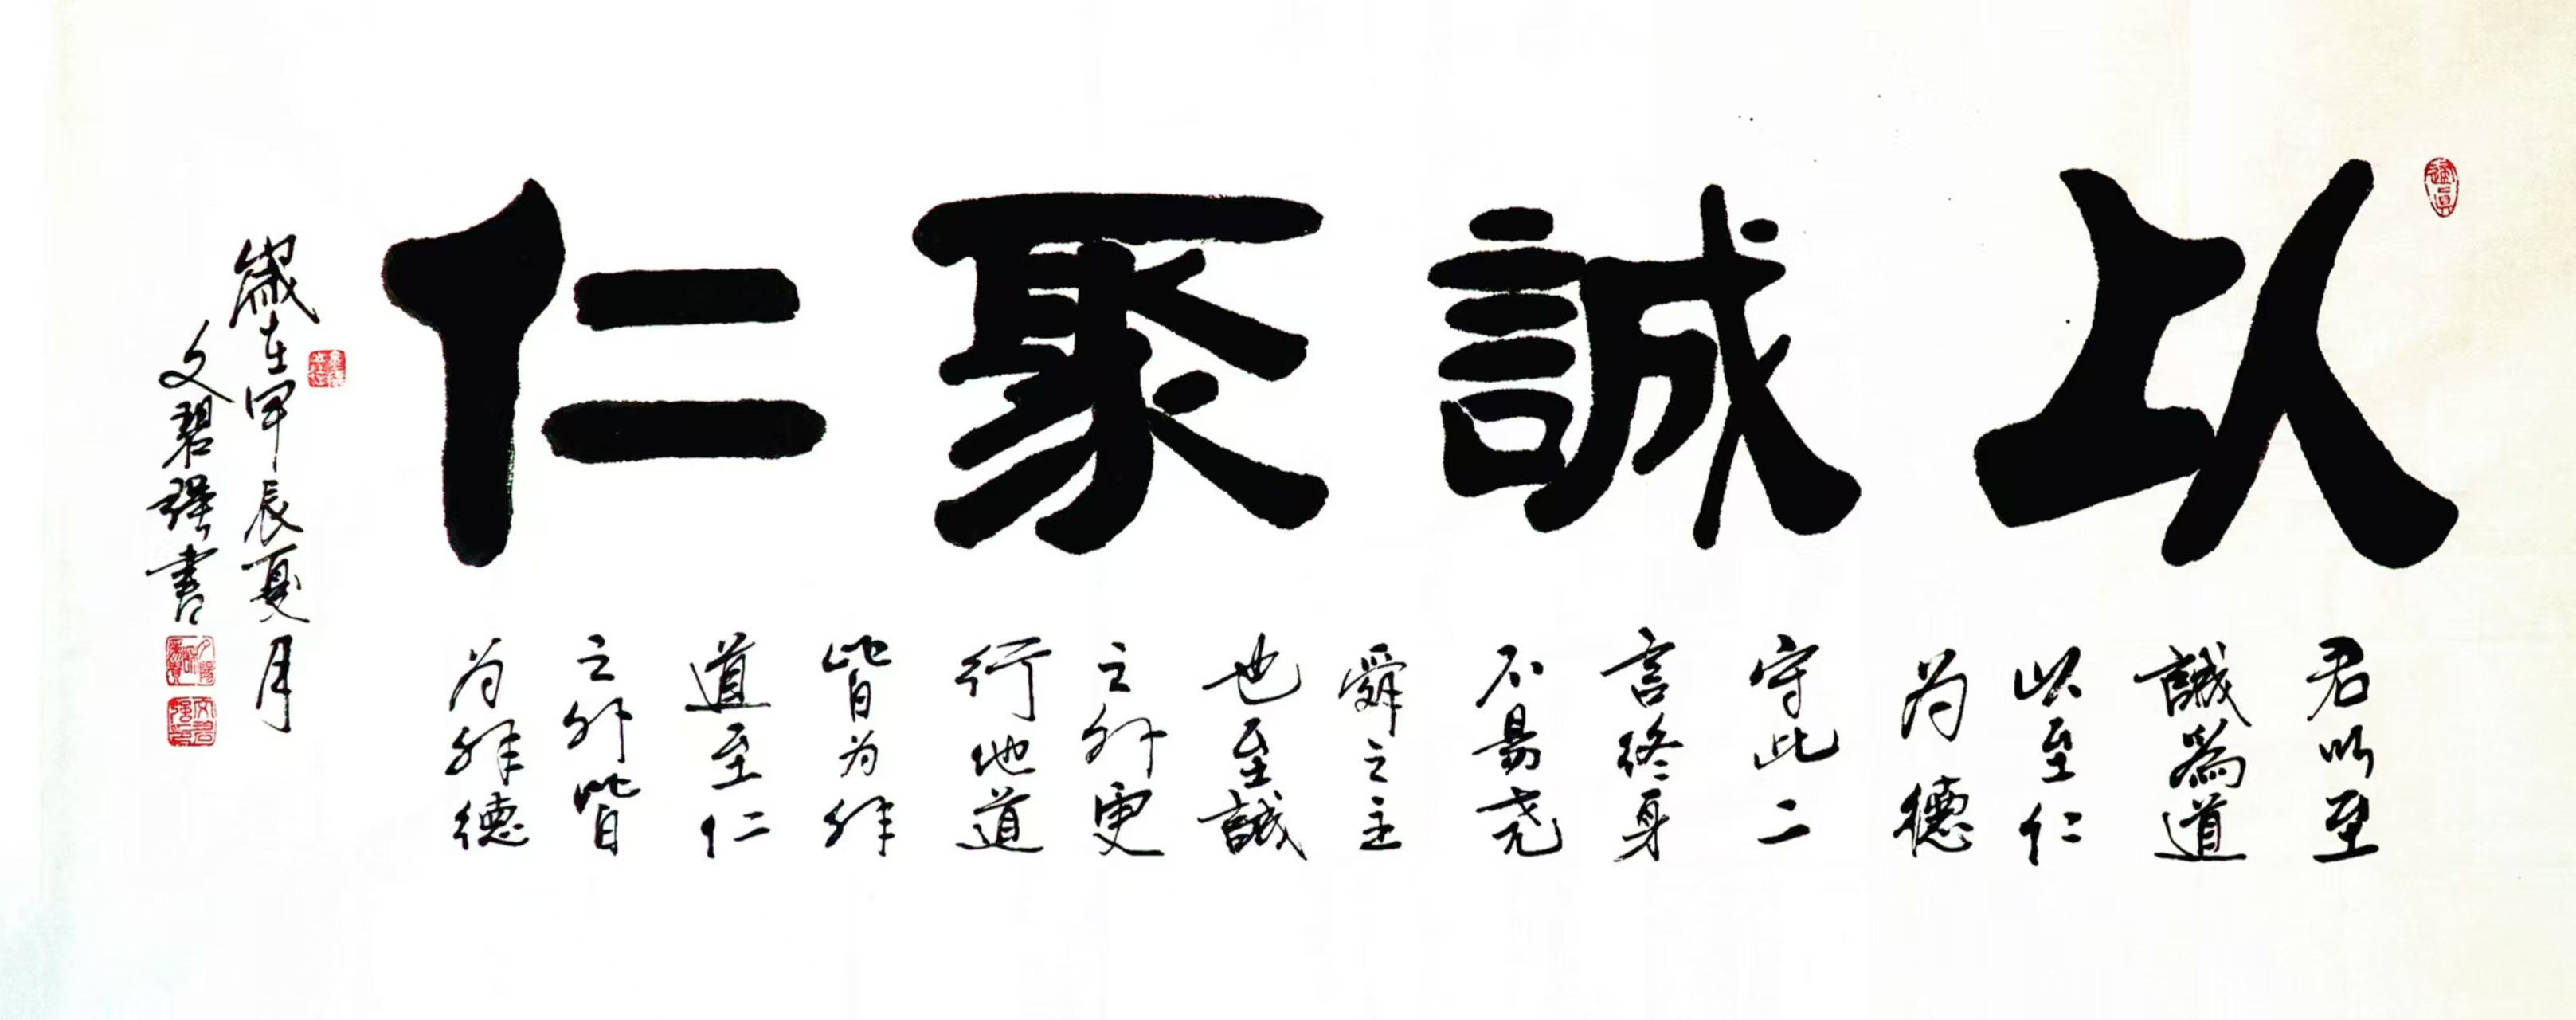 以誠聚仁
君以至
誠為道
以至仁
为德
守此二
言終身
不易堯
舜之主
也至誠
之外更
行他道
皆为非
道至仁
之外皆
为非德
歲在甲辰夏月
文碧强書